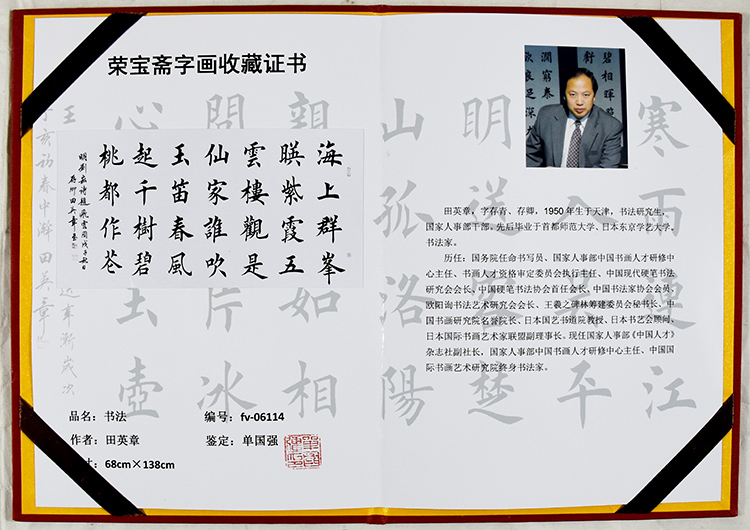 荣宝斋字画收藏证书
海上群峯
暎紫霞五
雲樓觀是
仙家誰吹
玉笛春風
起千樹碧
桃都作花
田英章
品名：书法
编号：fv-06114
作者：田英章
鉴定：单国强
寸：68cm×138cm
田英章，字存青、存卿，1950年生于天津，书法研究生，
国家人事部干部。先后毕业于首都师范大学、日本东京学艺大学。
书法家。
历任：国务院任命书写员、国家人事部中国书画人才研修中
心主任、书画人才资格审定委员会执行主任、中国现代硬笔书法
研究会会长、中国硬笔书法协会首任会长、中国书法家协会会员、
欧阳询书法艺术研究会会长、王羲之碑林筹建委员会秘书长、中
国书画研究院名誉院长、日本国艺书道院教授、日本书艺会顾问、
日本国际书画艺术家联盟副理事长。现任国家人事部《中国人才》
杂志社副社长，国家人事部中国书画人才研修中心主任、中国国
际书画艺术研究院终身书法家。
寒雨連江
平
明送客楚
山孤洛陽
親如相
問片冰
心玉壺
初春中澣田英章